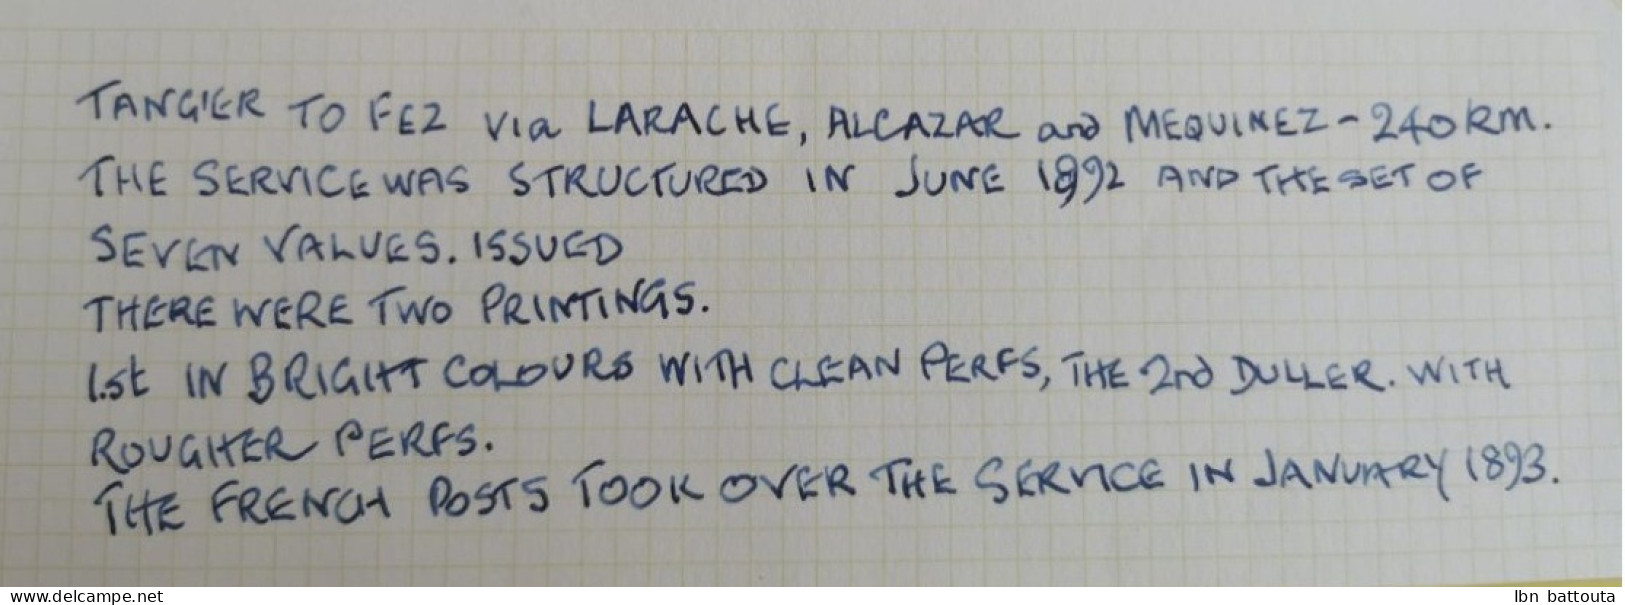 TANGIER TO FEZ via LARACHE, ALCAZAR and MEQUINEZ - 240 KM.
THE SERVICE WAS STRUCTURED IN JUNE 1892 AND THE SET OF
SEVEN VALUES. ISSUED
THERE WERE TWO PRINTINGS.
1.st IN BRIGHT COLOURS WITH CLEAN PERFS, THE 2nd DULLER. WITH
ROUGHER PERFS.
THE FRENCH POSTS TOOK OVER THE SERVICE IN JANUARY 1893.
www.delcampe.net
Ibn battouta